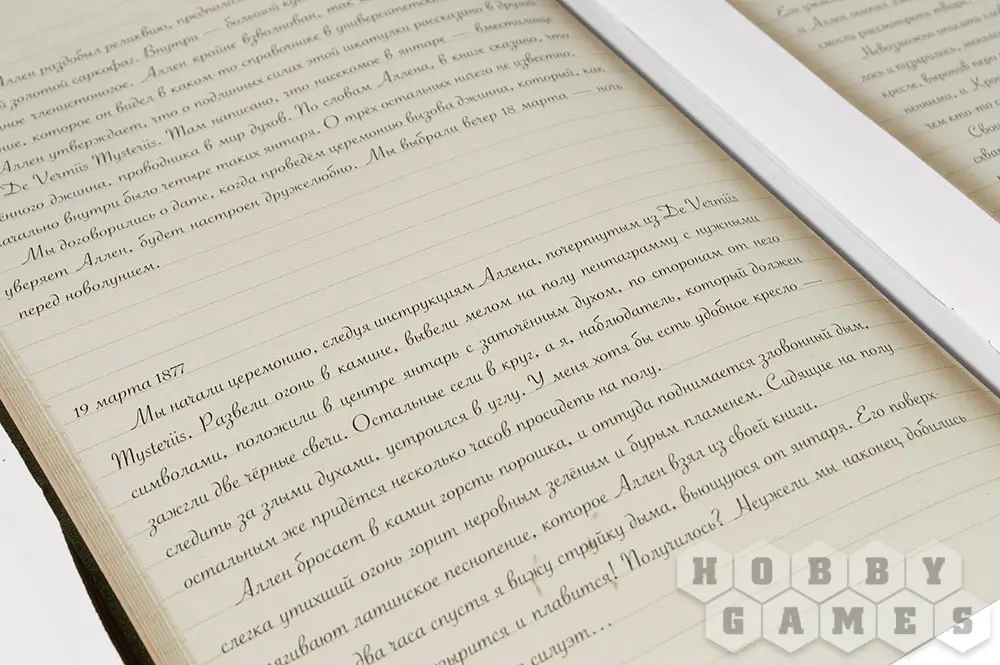 Аллен раздобыл реликвию,
й золотой саркофаг. Внутри — большой
ное членистоногое. Аллен крайне взволнован, так
ние, которое он видел в каком-то справочнике в университетской
Аллен утверждает, что о подлинных силах этой шкатулки рассказано в другой
De Vermiis Mysteriis. Там написано, что насекомое в янтаре — вместилище
ённого джинна, проводника в мир духов. По словам Аллена, в книге сказано, что
начально внутри было четыре таких янтаря. О трёх остальных ничего не известно.
Мы договорились о дате, когда проведём церемонию вызова джинна, который, как
уверяет Аллен, будет настроен дружелюбно. Мы выбрали вечер 18 марта — ночь
перед новолунием.
19 марта 1877
Мы начали церемонию, следуя инструкциям Аллена, почерпнутым из De Vermiis
Mysteriis. Развели огонь в камине, вывели мелом на полу пентаграмму с нужными
символами, положили в центре янтарь с заточённым духом, по сторонам от него
зажгли две чёрные свечи. Остальные сели в круг, а я, наблюдатель, который должен
следить за злыми духами, устроился в углу. У меня хотя бы есть удобное кресло —
остальным же придётся несколько часов просидеть на полу.
Аллен бросает в камин горсть порошка, и оттуда поднимается зловонный дым,
слегка утихший огонь горит неровным зелёным и бурым пламенем. Сидящие на полу
ягивают латинское песнопение, которое Аллен взял из своей книги.
два часа спустя я вижу струйку дыма, вьющуюся от янтаря. Его поверх-
зырится и плавится! Получилось? Неужели мы наконец добились
силуэт...
Его
Аллен
смогли рассмотреть
Невозможно описать
лось и пузырилось,
кресле,
ненными, и
чем кто-то
HOBBY
GAMES